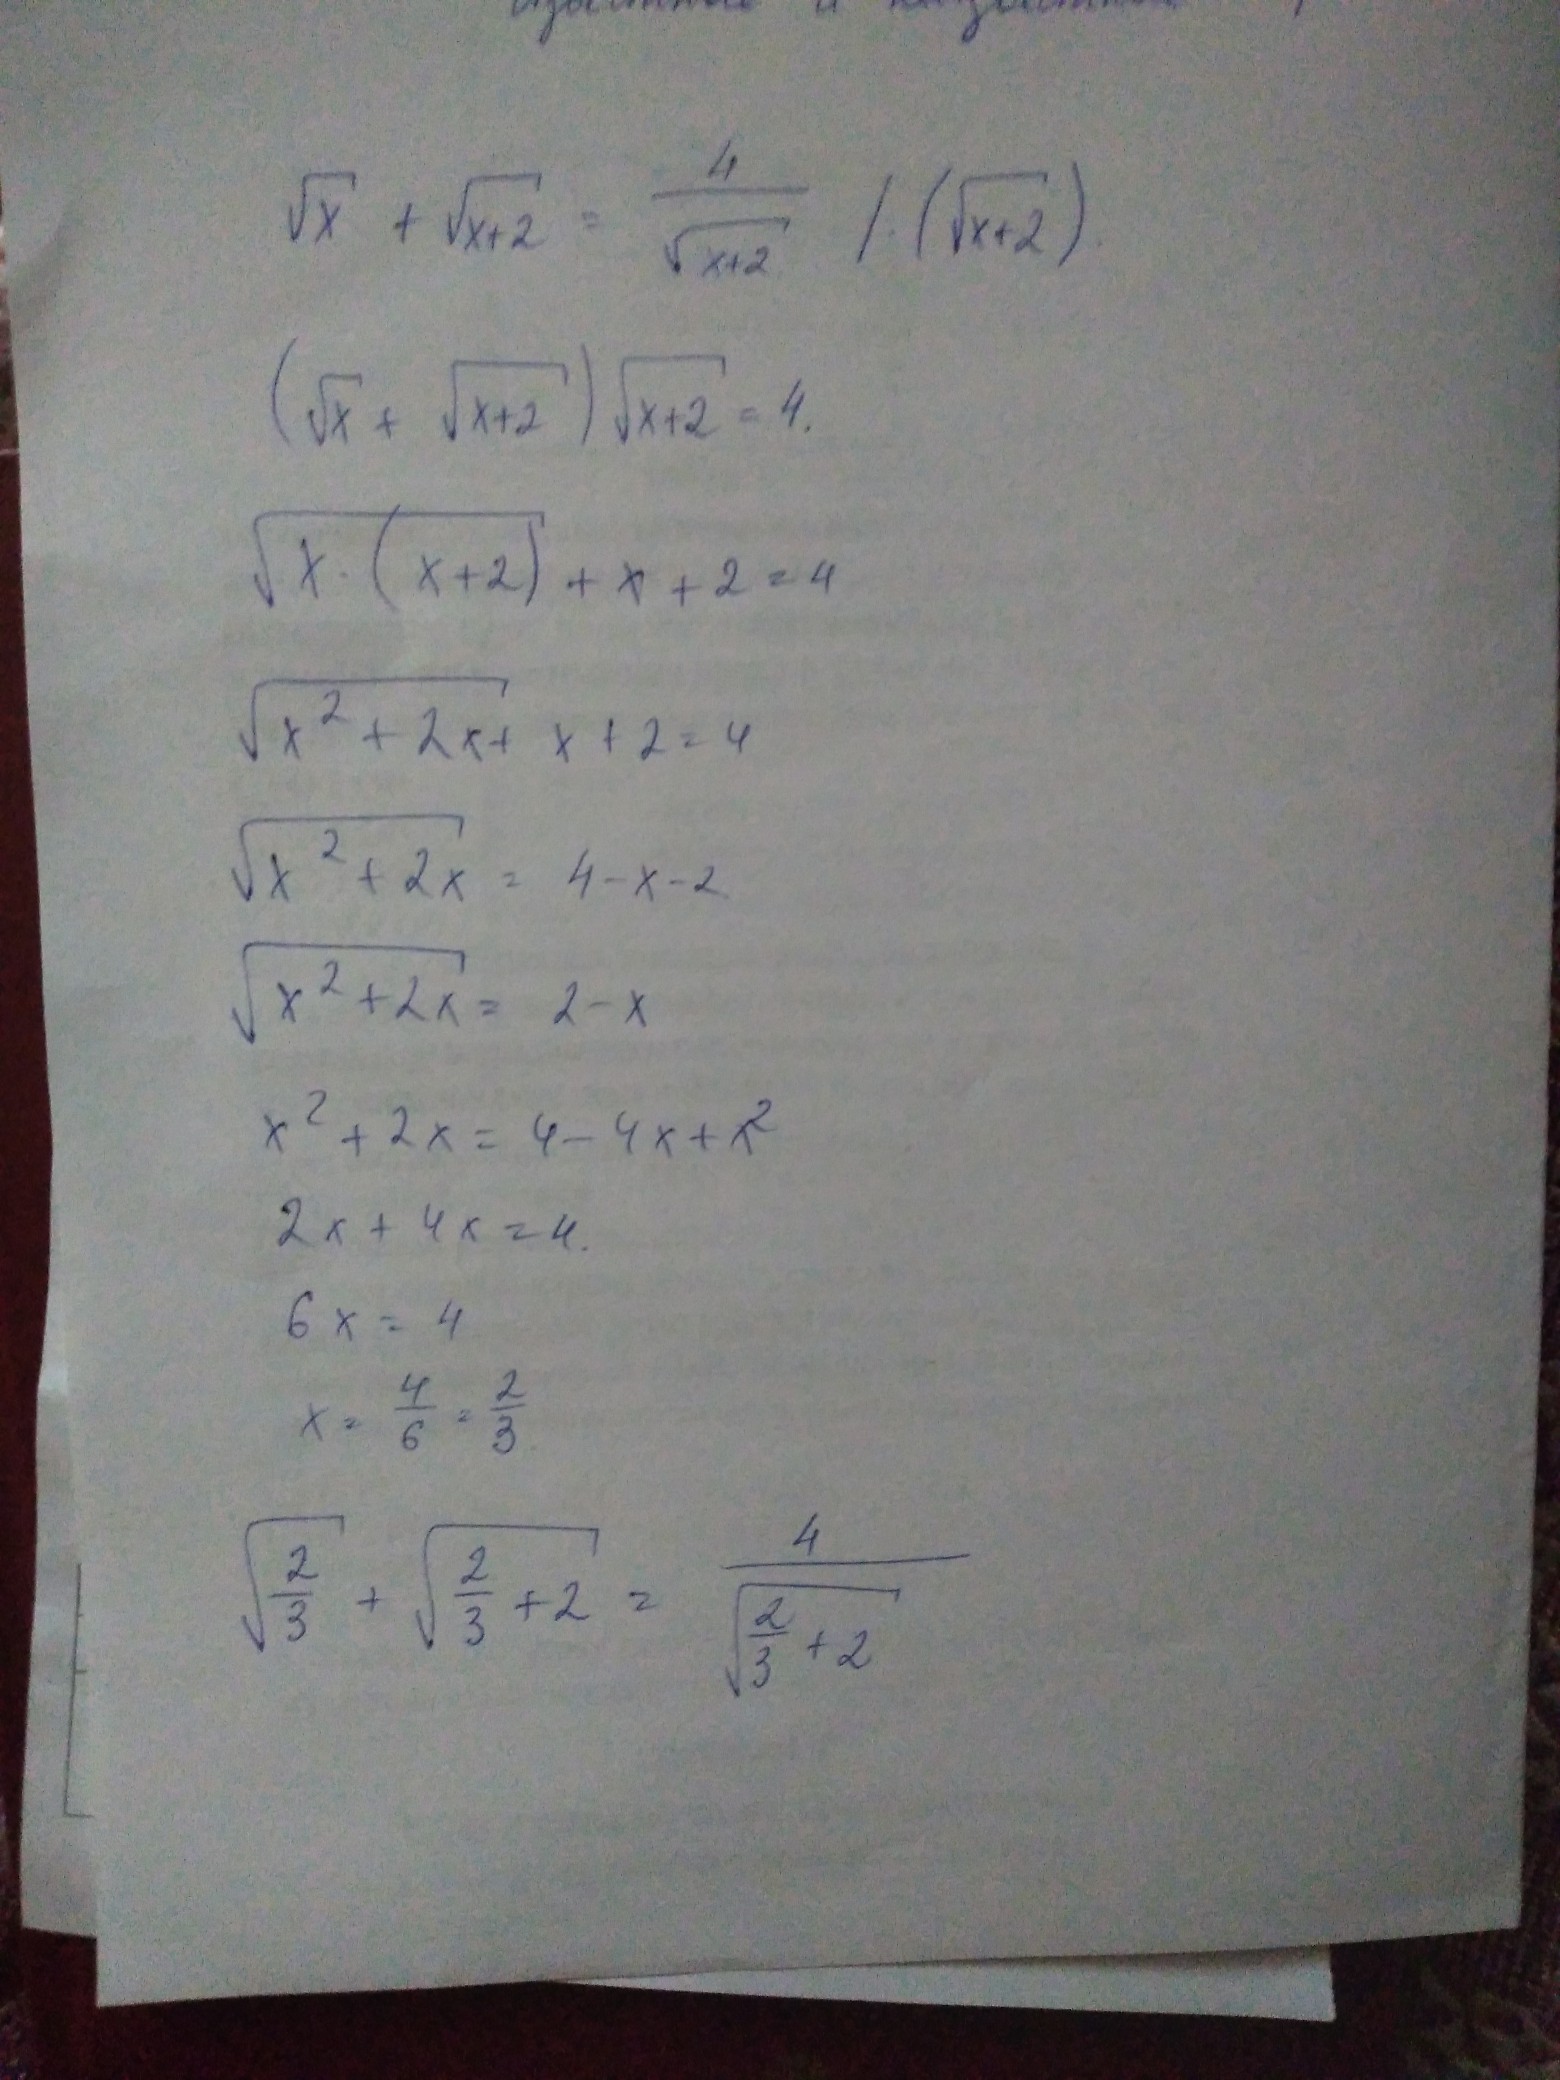 √x + √(x+2) = 4/√(x+2) /·(√(x+2)).
(√x + √(x+2))√(x+2) = 4.
√(x·(x+2)) + x + 2 = 4
√(x² + 2x) + x + 2 = 4
√(x² + 2x) = 4-x-2
√(x² + 2x) = 2-x
x² + 2x = 4-4x+x²
2x + 4x = 4.
6x = 4
x = 4/6 = 2/3
√(2/3) + √(2/3 + 2) = 4/√(2/3 + 2)